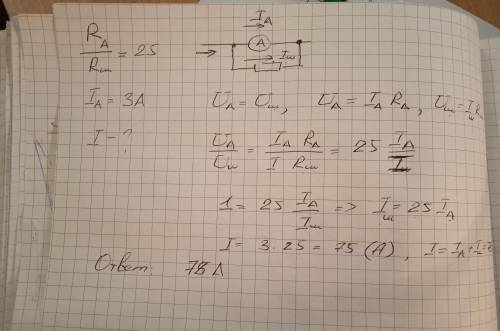 I_A
R_A / R_ш = 25 → A
I_ш
I_A = 3A U_A = U_ш, U_A = I_A R_A, U_ш = I_ш R
I – ? U_A / U_ш = I_A R_A / I R_ш = 25 I_A / I_ш
1 = 25 I_A / I_ш => I_ш = 25 I_A
I = 3 · 25 = 75 (A), I = I_A + I_ш =
Ответ: 78 А